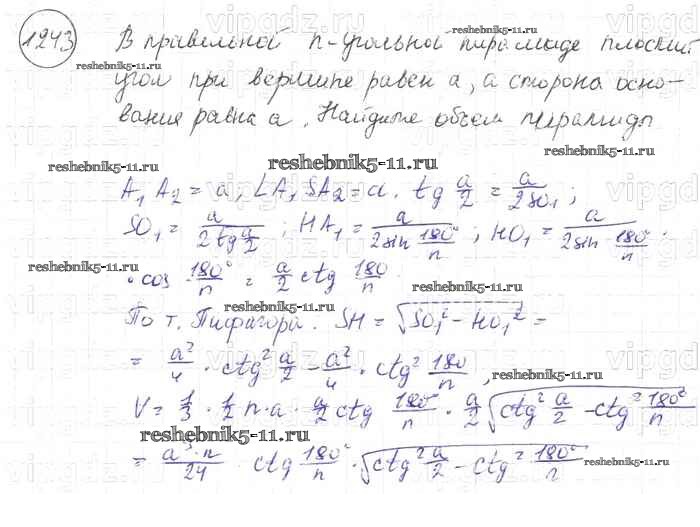 1243 В правильной n-угольной пирамиде плоский
угол при вершине равен α, а сторона осно-
вания равна a. Найдите объем пирамиды
reshebnik5-11.ru
A₁A₂ = a, ∠A₁SA₂ = α. tg α/2 = a/2SO₁;
SO₁ = a/(2tg α/2); HA₁ = a/(2sin 180°/n); HO₁ = a/(2sin 180°/n) ·
· cos 180°/n = a/2 ctg 180/n.
По т. Пифагора. SH = √(SO₁² - HO₁²) =
= a²/4 · ctg² α/2 - a²/4 · ctg² 180/n,
V = 1/3 · 1/2 n · a · a/2 ctg 180°/n · a/2 √(ctg² α/2 - ctg² 180°/n)
= a³·n/24 · ctg 180°/n · √(ctg² α/2 - ctg² 180°/n)